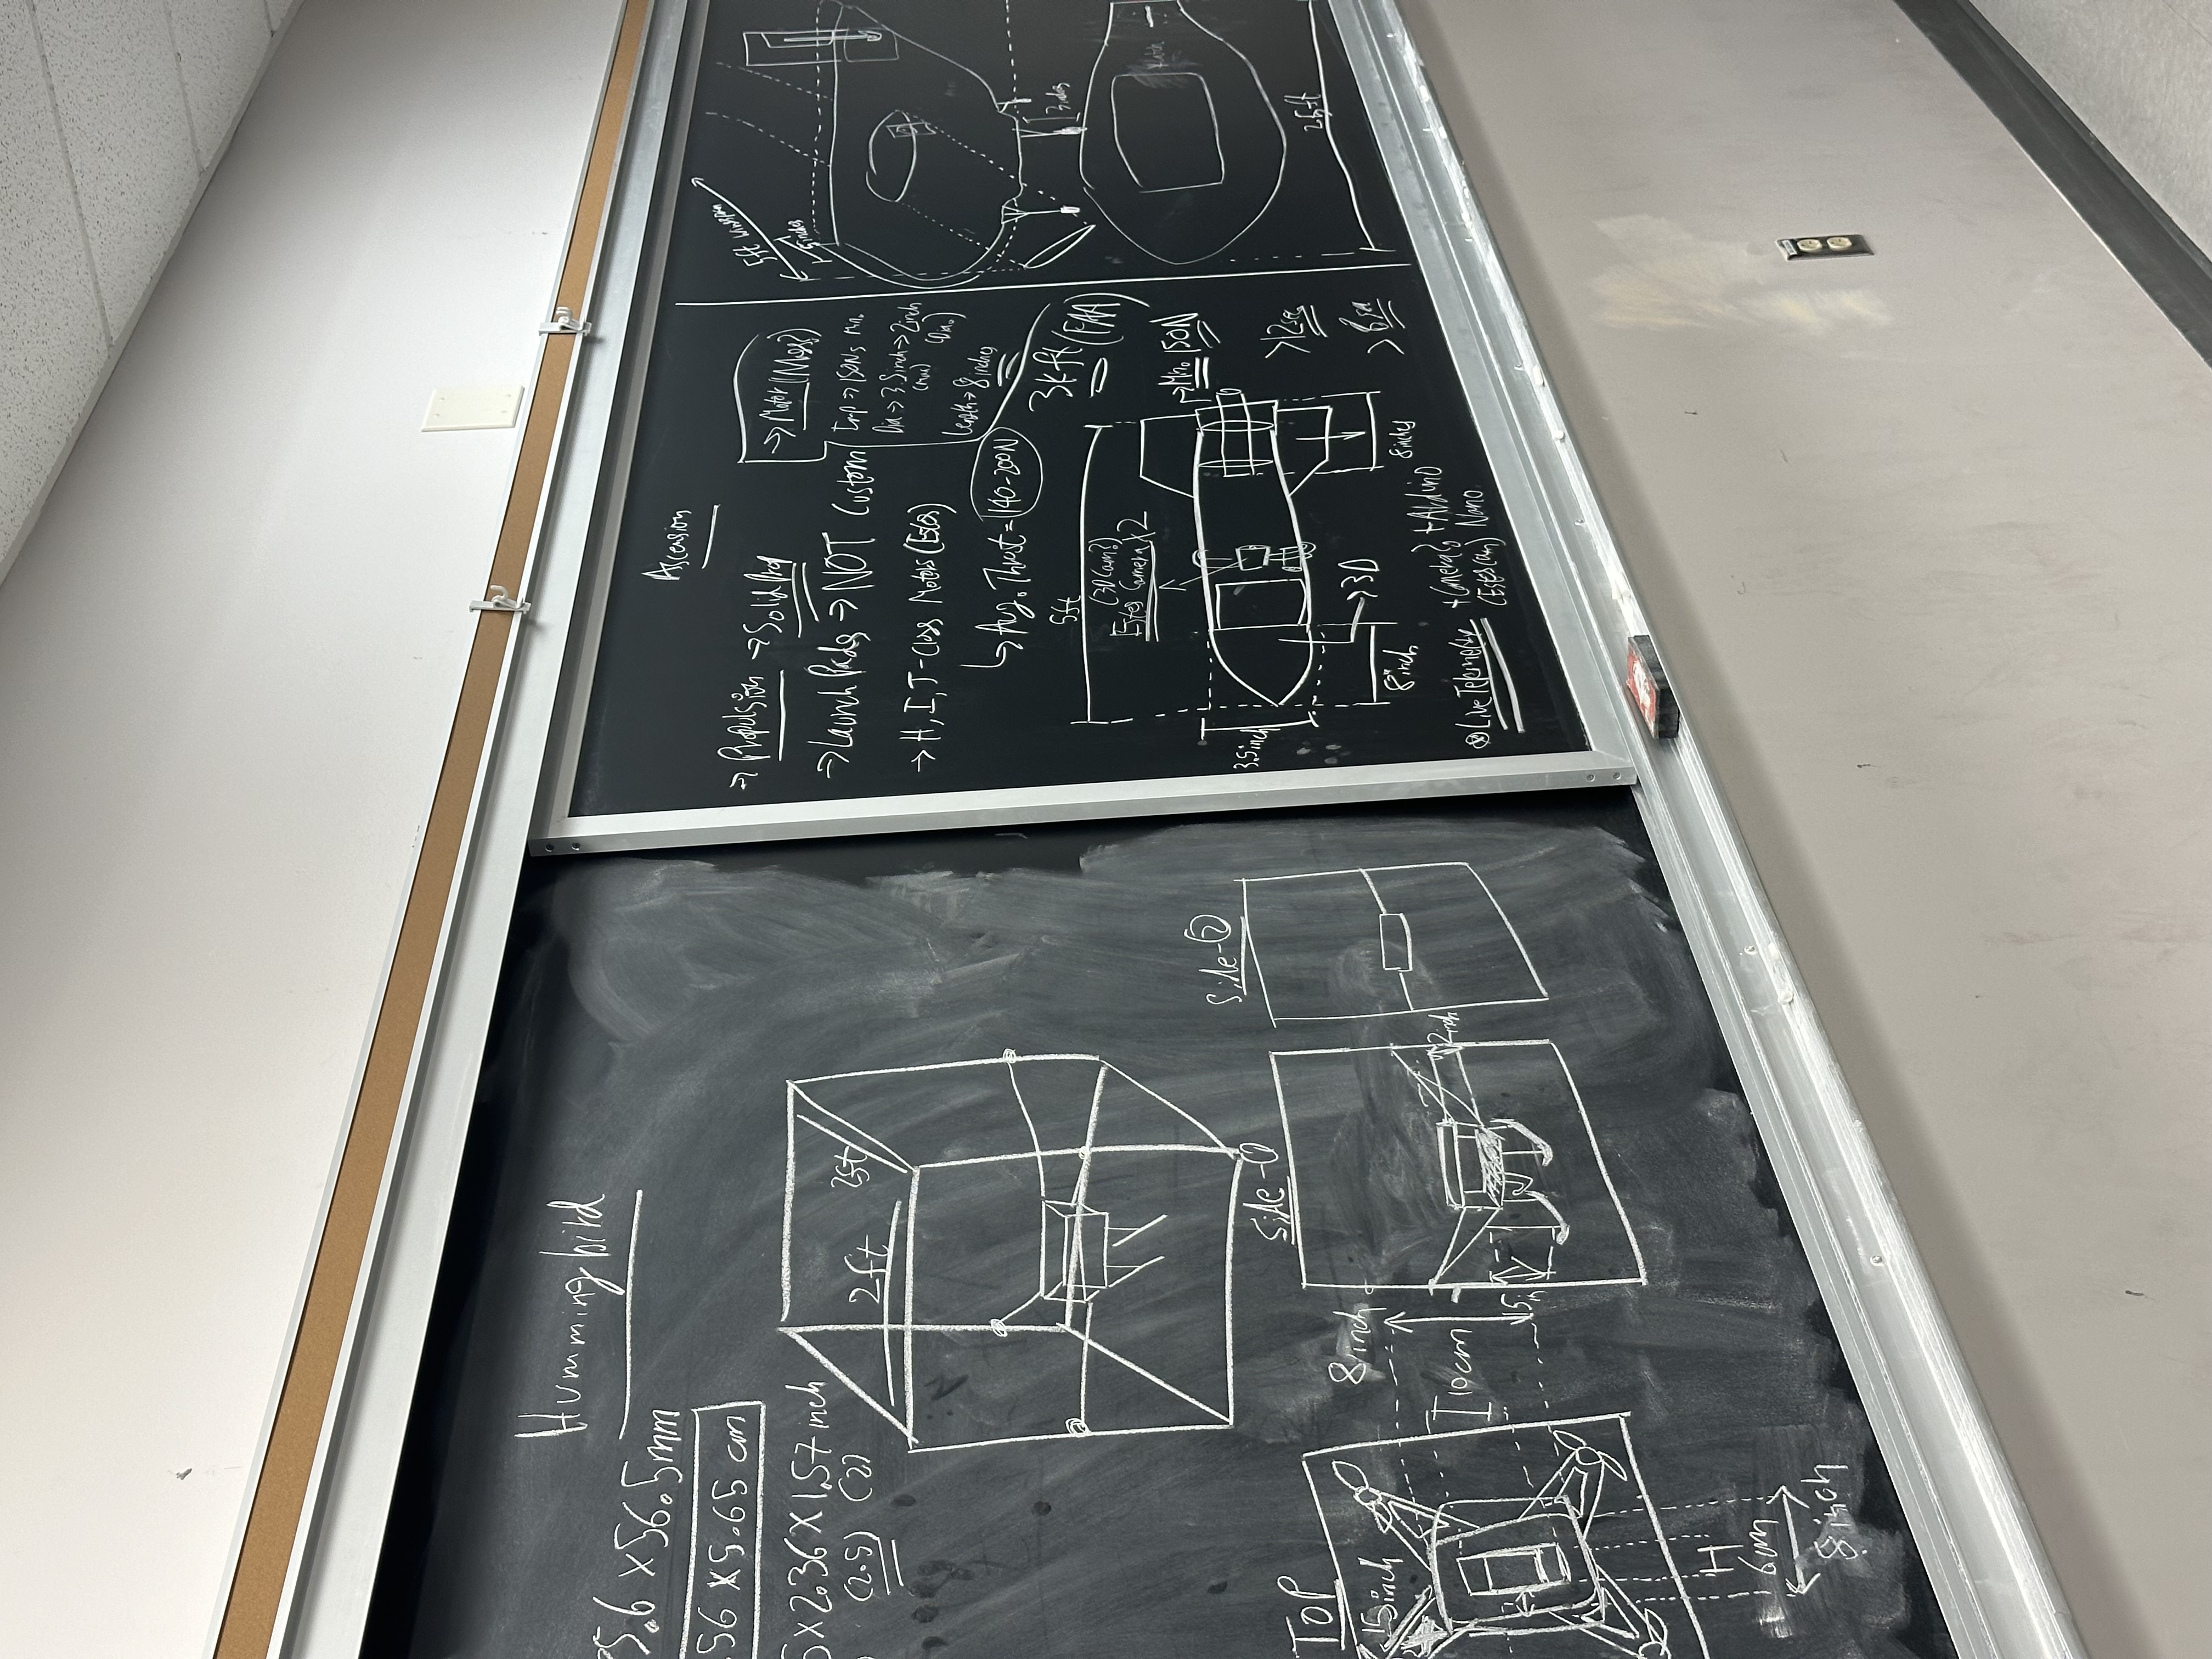 Hummingbird
5.6 x 56.5mm
.56 x 5.65 cm
5 x 2.36 x 1.57 inch
(2.5) (2)
2ft
TOP
15inch
10cm
6cm
8 inch
Side-①
8 inch
2 inch
Side-②
Ascension
→ Propulsion → Solid Prop
→ Launch Pads → NOT Custom
→ H, I, J-Class Motors (Estes)
↳ Avg. Thrust = 140-200N
→ Motor (Mass?)
Imp → 150Ns Min.
Dia → 3.5inch → 2inch
Length → 8 inches
3kft (FAA)
5ft
(3D Cam?)
Estes Camera x2
→ Min. 150N
3.5inch
→ 3D
8inch
8inches
>12sec
Live Telemetry + Camera? + Arduino
(Estes Cam) Nano
5ft wingspan
5inches
3inches
2.5ft